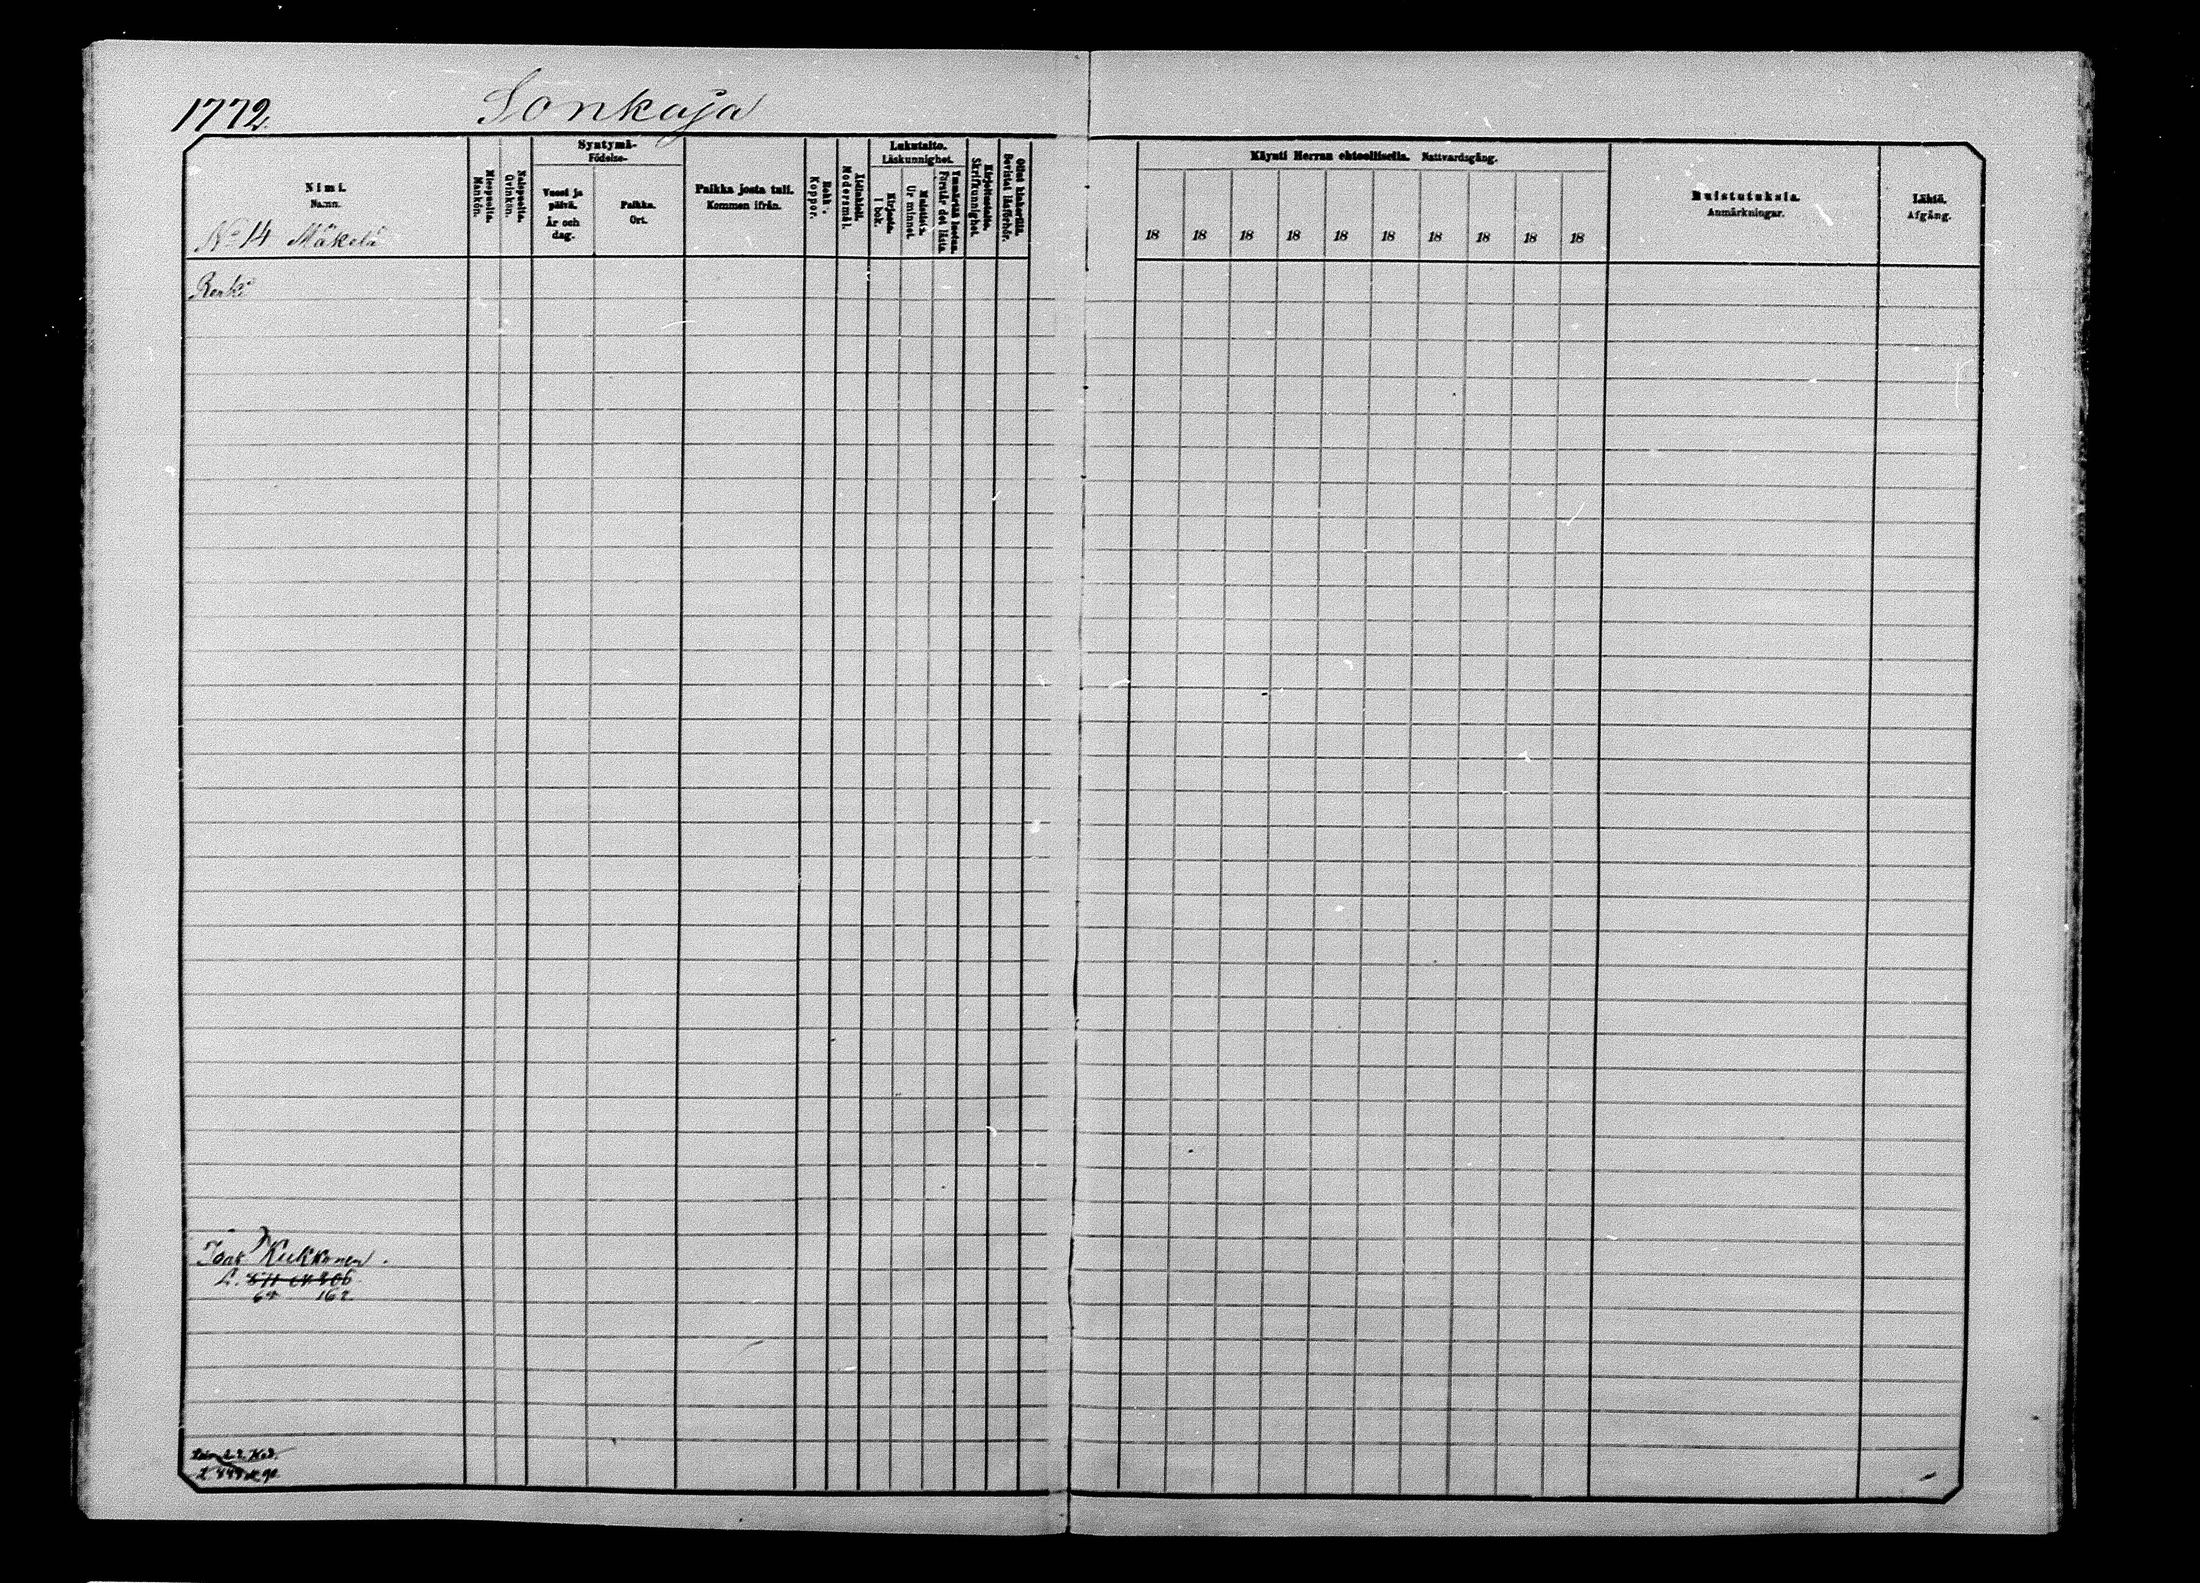 1772.
Sonkaja
Nimi.
Namn.
No 14 Mäkelä
Miespuolia.
Mankön.
Naispuolia.
Qvinkön.
Syntymä-
Födelse-
Vuosi ja päivä.
År och dag.
Paikka.
Ort.
Paikka josta tuli.
Kommen ifrån.
Rokk.
Koppor.
Äidinkieli.
Modersmål.
Lukutaito.
Läskunnighet.
Kirjasta.
I bok.
Muistista.
Ur minnet.
Ymmärtää luetun.
Förstår det lästa.
Kirjoitustaito.
Skrifkunnighet.
Ollut kinkerillä.
Bevistat läsförhör.
Käynti Herran ehtoollisella. Nattvardsgång.
18 18 18 18 18 18 18 18 18 18
Muistutuksia.
Anmärkningar.
Lähtö.
Afgång.
Renki
Kukkonen.
64 162